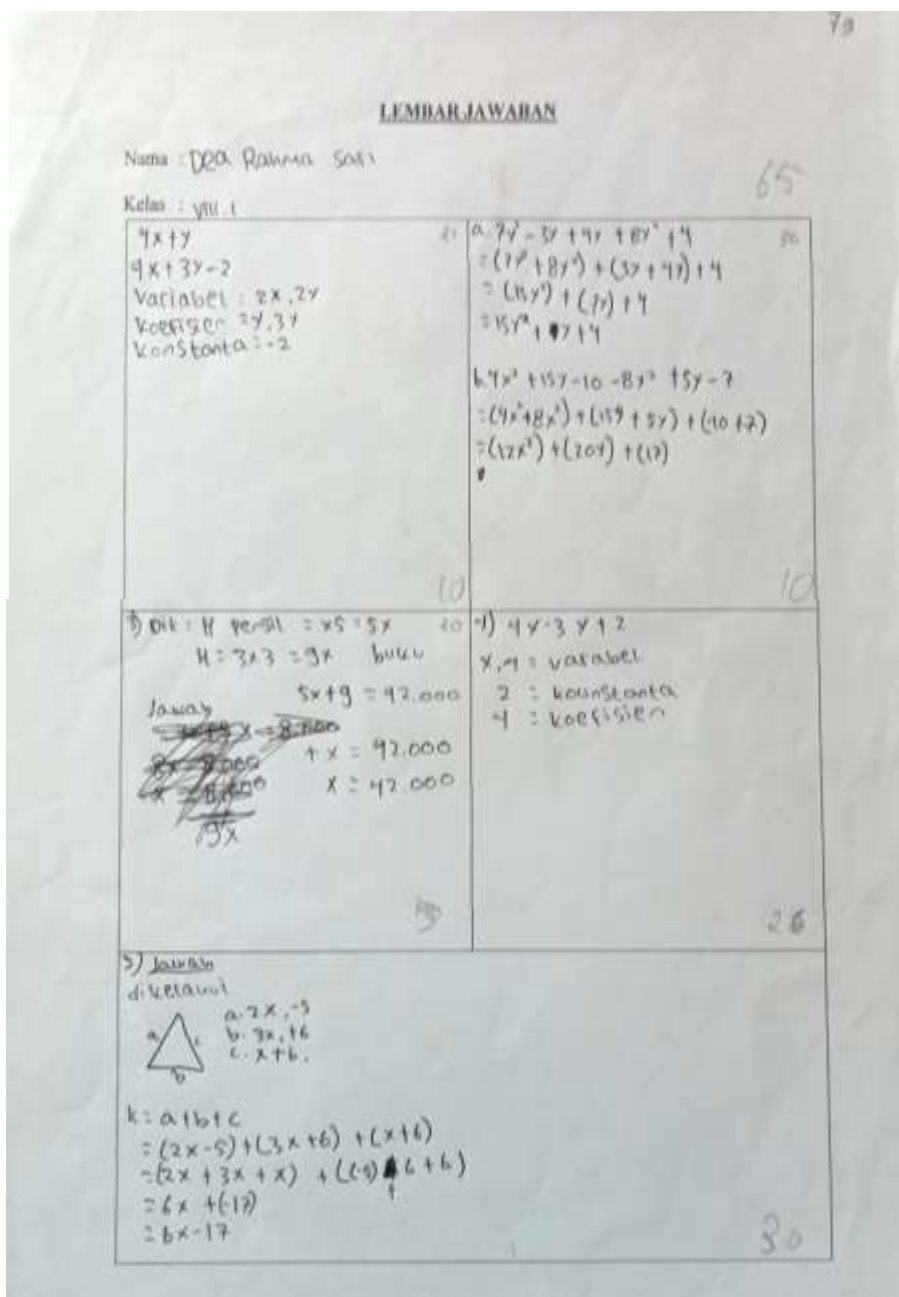 79
LEMBAR JAWABAN
Nama : Dea Rahma Sari
65
Kelas : VIII.1
4x+y
4x+3y-2
Variabel : 2x,2y
Koefisen = y,3y
Konstanta = -2
10
a. 7y² - 3y + 4y + 8y² + 4
= (7y² + 8y²) + (3y + 4y) + 4
= (15y²) + (7y) + 4
= 15y² + 7y + 4
b. 4x² + 15y - 10 - 8x² + 5y - 7
= (4x² + 8x²) + (15y + 5y) + (10 + 7)
= (12x²) + (20y) + (17)
10
3) Dik : H = x5 = 5x
H = 3x3 = 9x buku
5x+9 = 42.000
Jawab
+ x = 42.000
x = 42.000
4) 4x-3y+2
x,y = varabel
2 = kounstanta
4 = koefisien
26
5) Jawab
diketahui
a. 2x,-5
b. 3x,+6
c. x+6,
a
c
b
k = a+b+c
= (2x-5)+(3x+6)+(x+6)
= (2x+3x+x) + ((-5) + 6+6)
= 6x + (-17)
= 6x-17
30